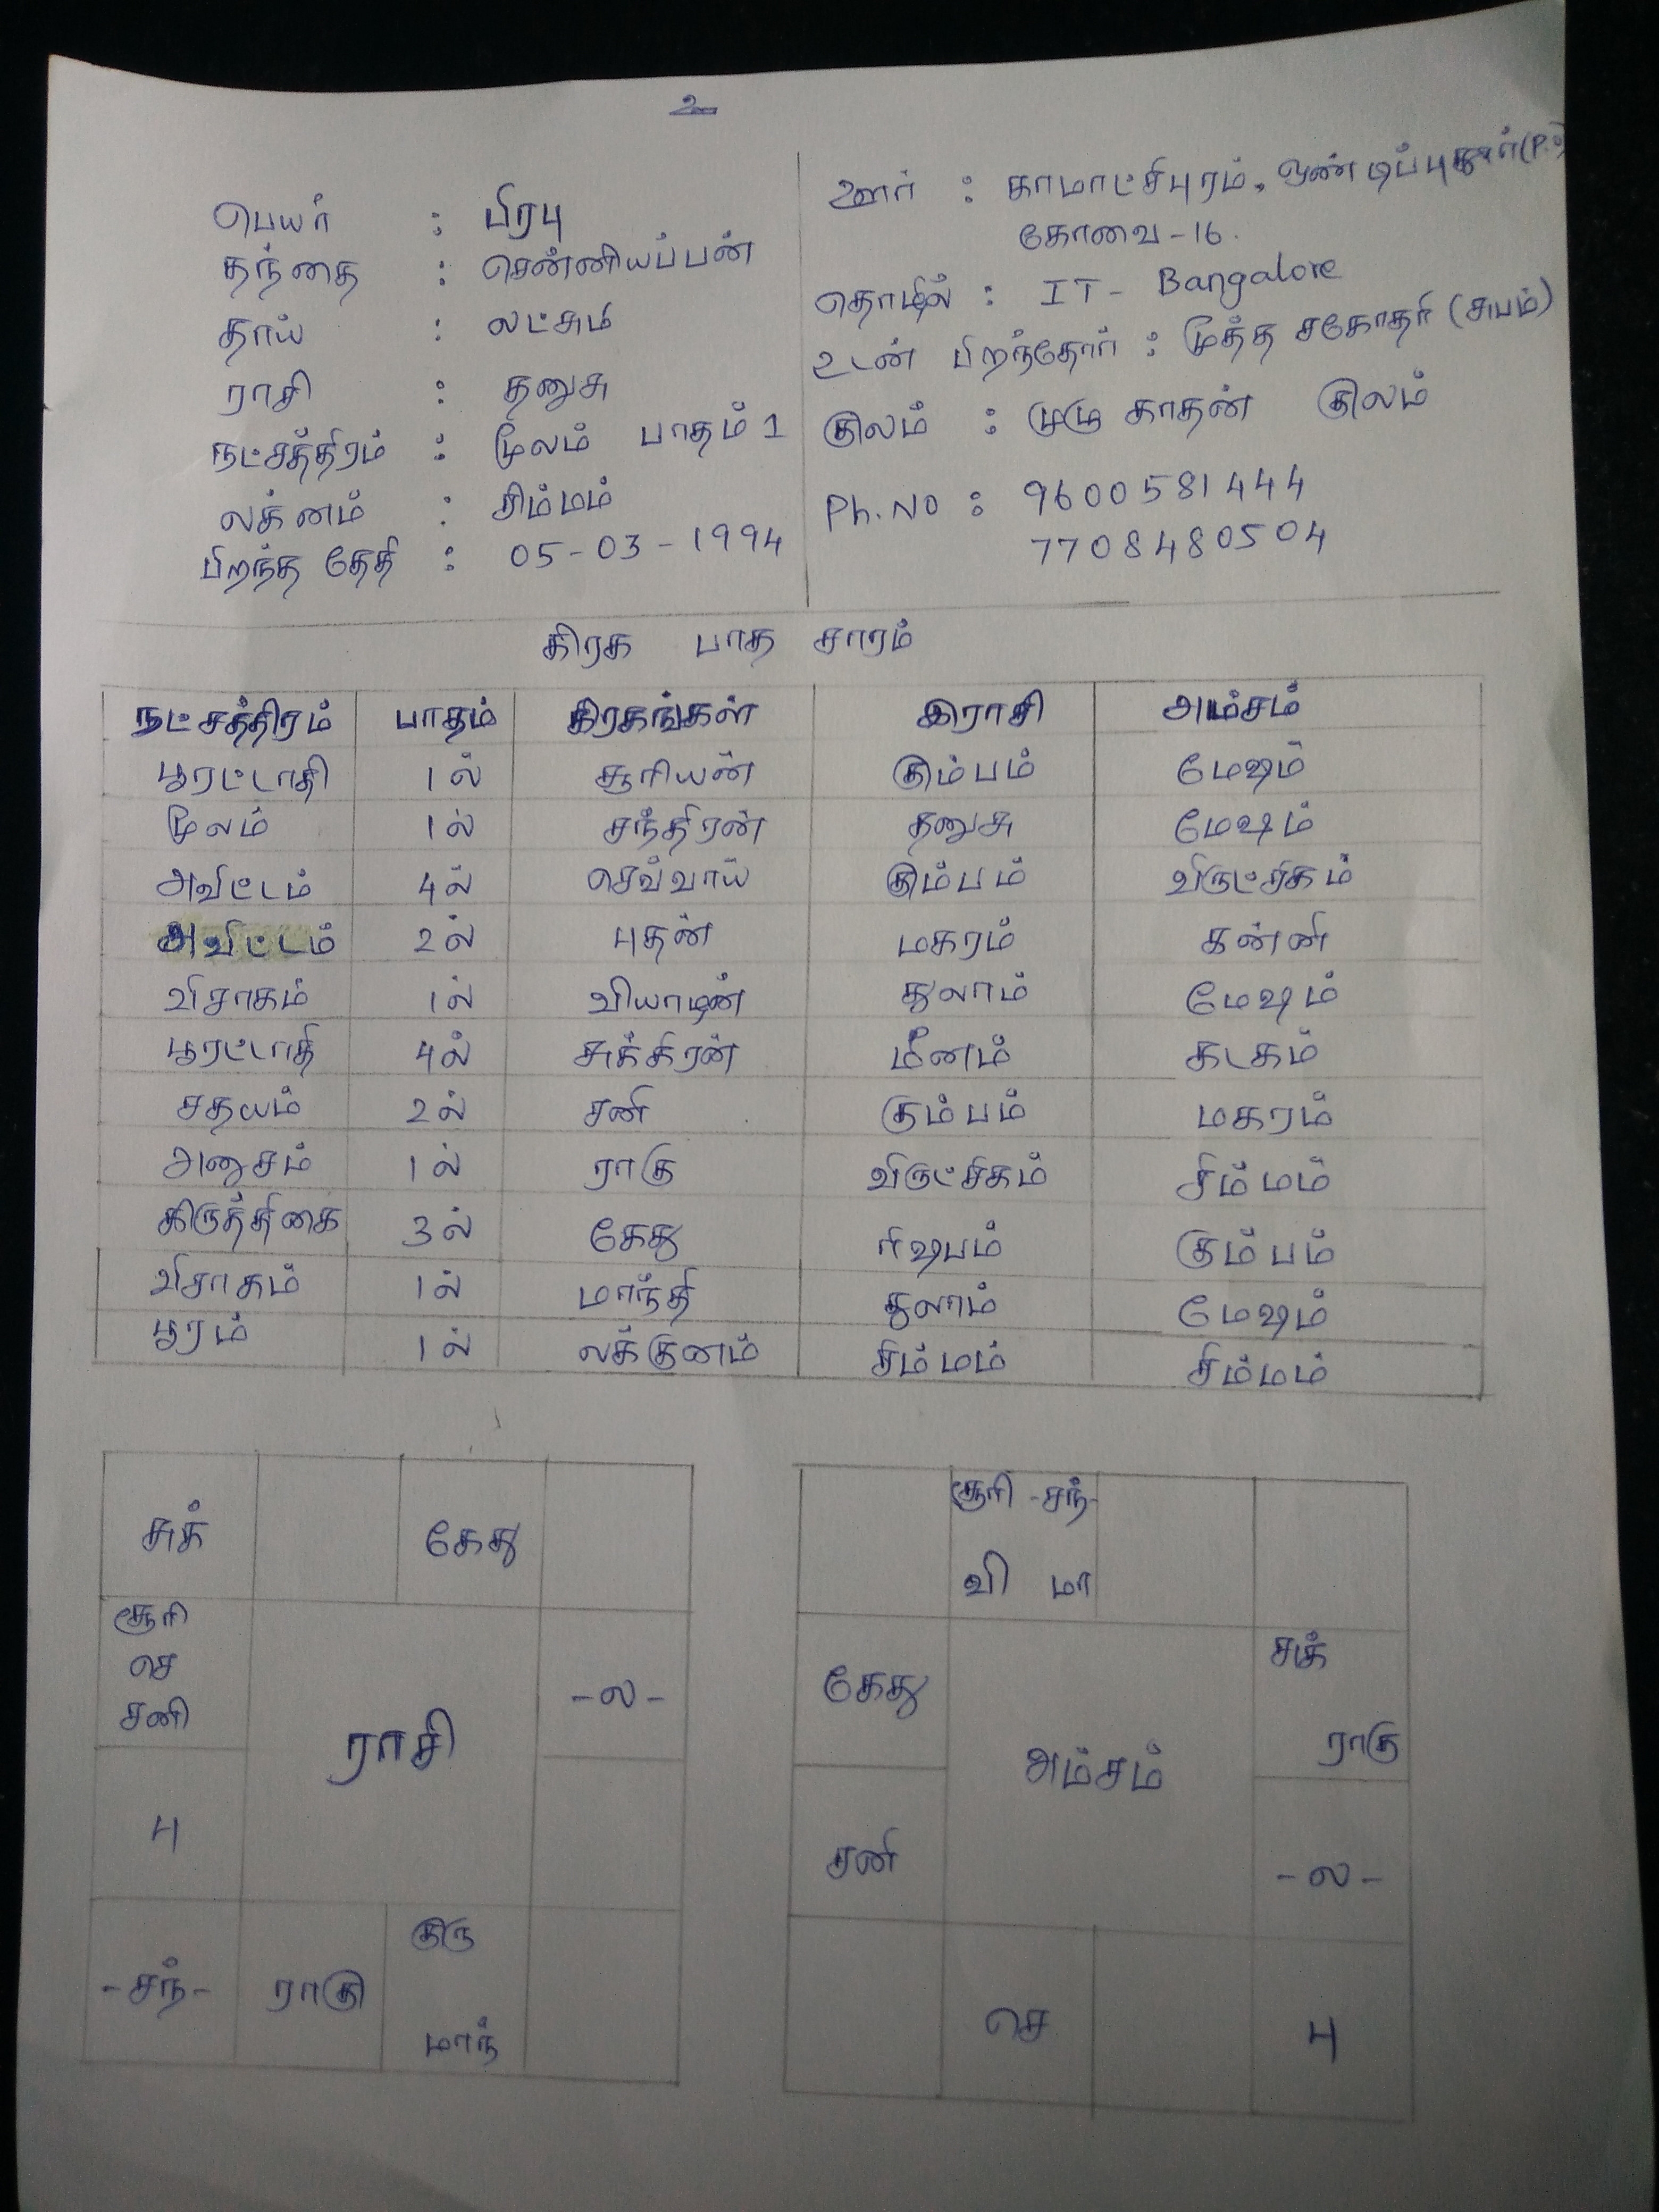 உ
பெயர் : பிரபு
தந்தை : சென்னியப்பன்
தாய் : லட்சுமி
ராசி : தனுசு
நட்சத்திரம் : மூலம் பாதம் 1
லக்னம் : சிம்மம்
பிறந்த தேதி : 05-03-1994
ஊர் : காமாட்சிபுரம், ஒண்டிப்புதூர்(P.o)
கோவை-16.
தொழில் : IT- Bangalore
உடன் பிறந்தோர் : மூத்த சகோதரி (சுபம்)
குலம் : முழு காதன் குலம்
Ph.No : 9600581444
7708480504
கிரக பாத சாரம்
நட்சத்திரம் பாதம் கிரகங்கள் இராசி அம்சம்
பூரட்டாதி 1ல் சூரியன் கும்பம் மேஷம்
மூலம் 1ல் சந்திரன் தனுசு மேஷம்
அவிட்டம் 4ல் செவ்வாய் கும்பம் விருட்சிகம்
அவிட்டம் 2ல் புதன் மகரம் கன்னி
விசாகம் 1ல் வியாழன் துலாம் மேஷம்
பூரட்டாதி 4ல் சுக்கிரன் மீனம் கடகம்
சதயம் 2ல் சனி கும்பம் மகரம்
அனுசம் 1ல் ராகு விருட்சிகம் சிம்மம்
கிருத்திகை 3ல் கேது ரிஷபம் கும்பம்
விசாகம் 1ல் மாந்தி துலாம் மேஷம்
பூரம் 1ல் லக்குனம் சிம்மம் சிம்மம்
சுக் கேது
சூரி
செ
சனி
-ல-
ராசி
பு
குரு
-சந்- ராகு
மாந்
சூரி -சந்-
வி மா
கேது
சுக்
ராகு
அம்சம்
சனி
-ல-
செ பு